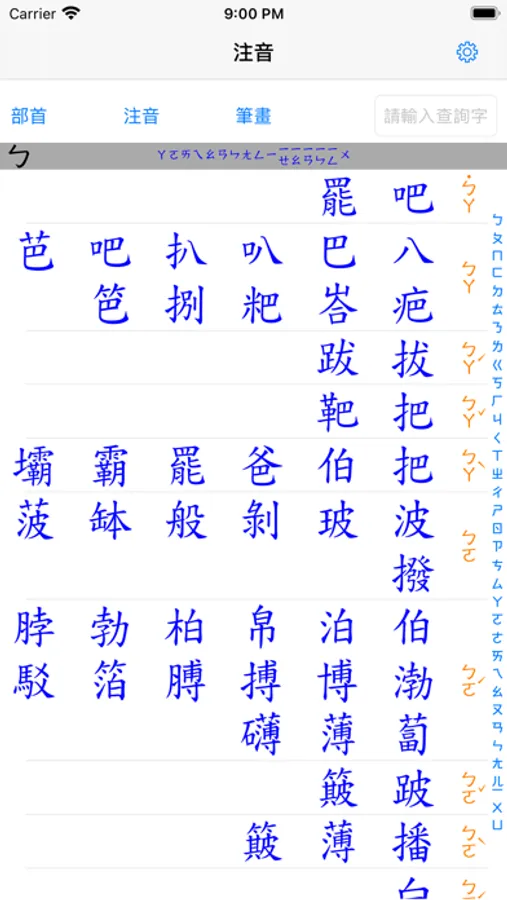 Carrier 9:00 PM
注音
部首 注音 筆畫 請輸入查詢字
ㄅ ㄚㄛㄞㄟㄠㄢㄣㄤㄥㄧㄧㄝㄧㄠㄧㄢㄧㄣㄧㄥㄨ
˙ㄅㄚ
吧罷
ㄅㄚ
八巴叭扒吧芭
疤峇粑捌笆
ㄅㄚˊ
拔跋
ㄅㄚˇ
把靶
ㄅㄚˋ
把伯爸罷霸壩
ㄅㄛ
波玻剝般缽菠
撥
ㄅㄛˊ
伯泊帛柏勃脖
渤博搏膊箔駁
蔔薄礴
ㄅㄛˇ
跛簸
ㄅㄛˋ
播薄簸
ㄅㄛˊ
白
ㄅㄆㄇㄈㄉㄊㄋㄌㄍㄎㄏㄐㄑㄒㄓㄔㄕㄖㄗㄘㄙㄚㄛㄜㄞㄟㄠㄡㄢㄣㄤㄦㄧㄨㄩ